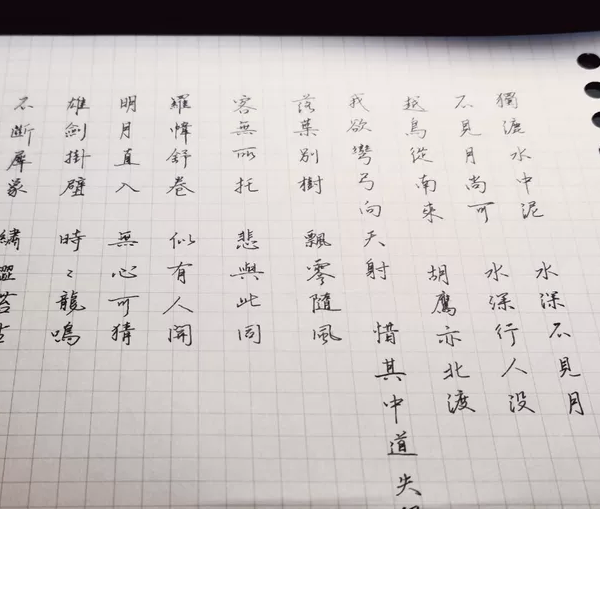 獨漉水中泥 水深不見月
不見月尚可 水深行人沒
越鳥從南來 胡鷹亦北渡
我欲彎弓向天射 惜其中道失
落葉別樹 飄零隨風
客無所托 悲與此同
羅幃舒卷 似有人開
明月直入 無心可猜
雄劍掛壁 時〻龍鳴
不斷犀象 繡澀苔生